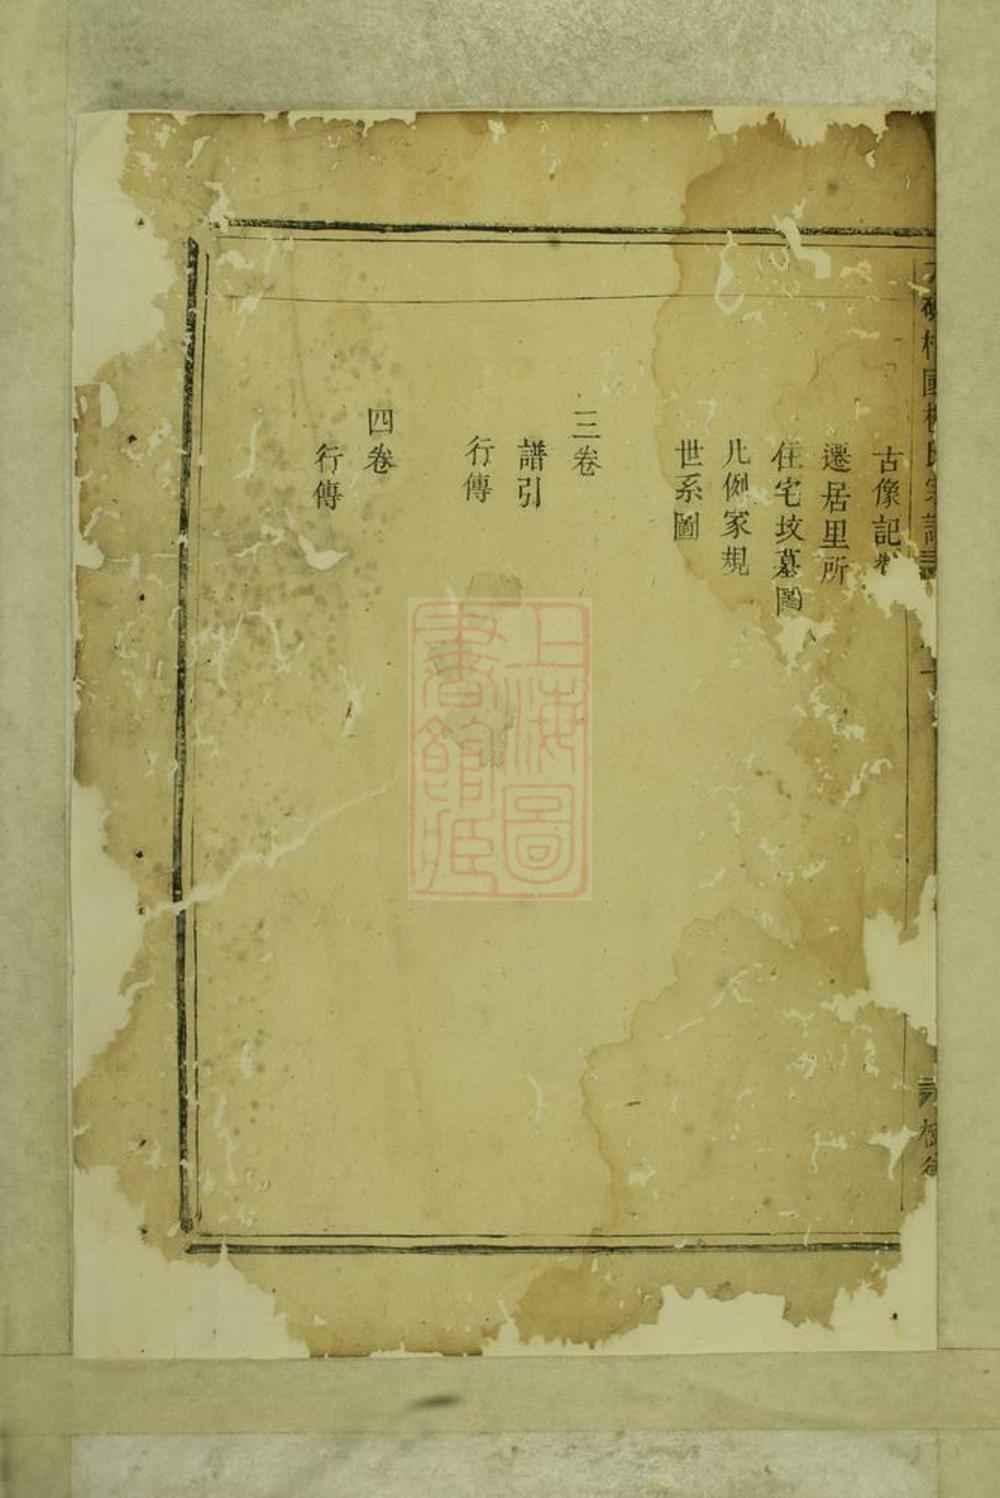 古像記
遷居里所
住宅坟墓圖
凡例家規
世系圖
三卷
譜引
行傳
四卷
行傳
上海圖
書館藏